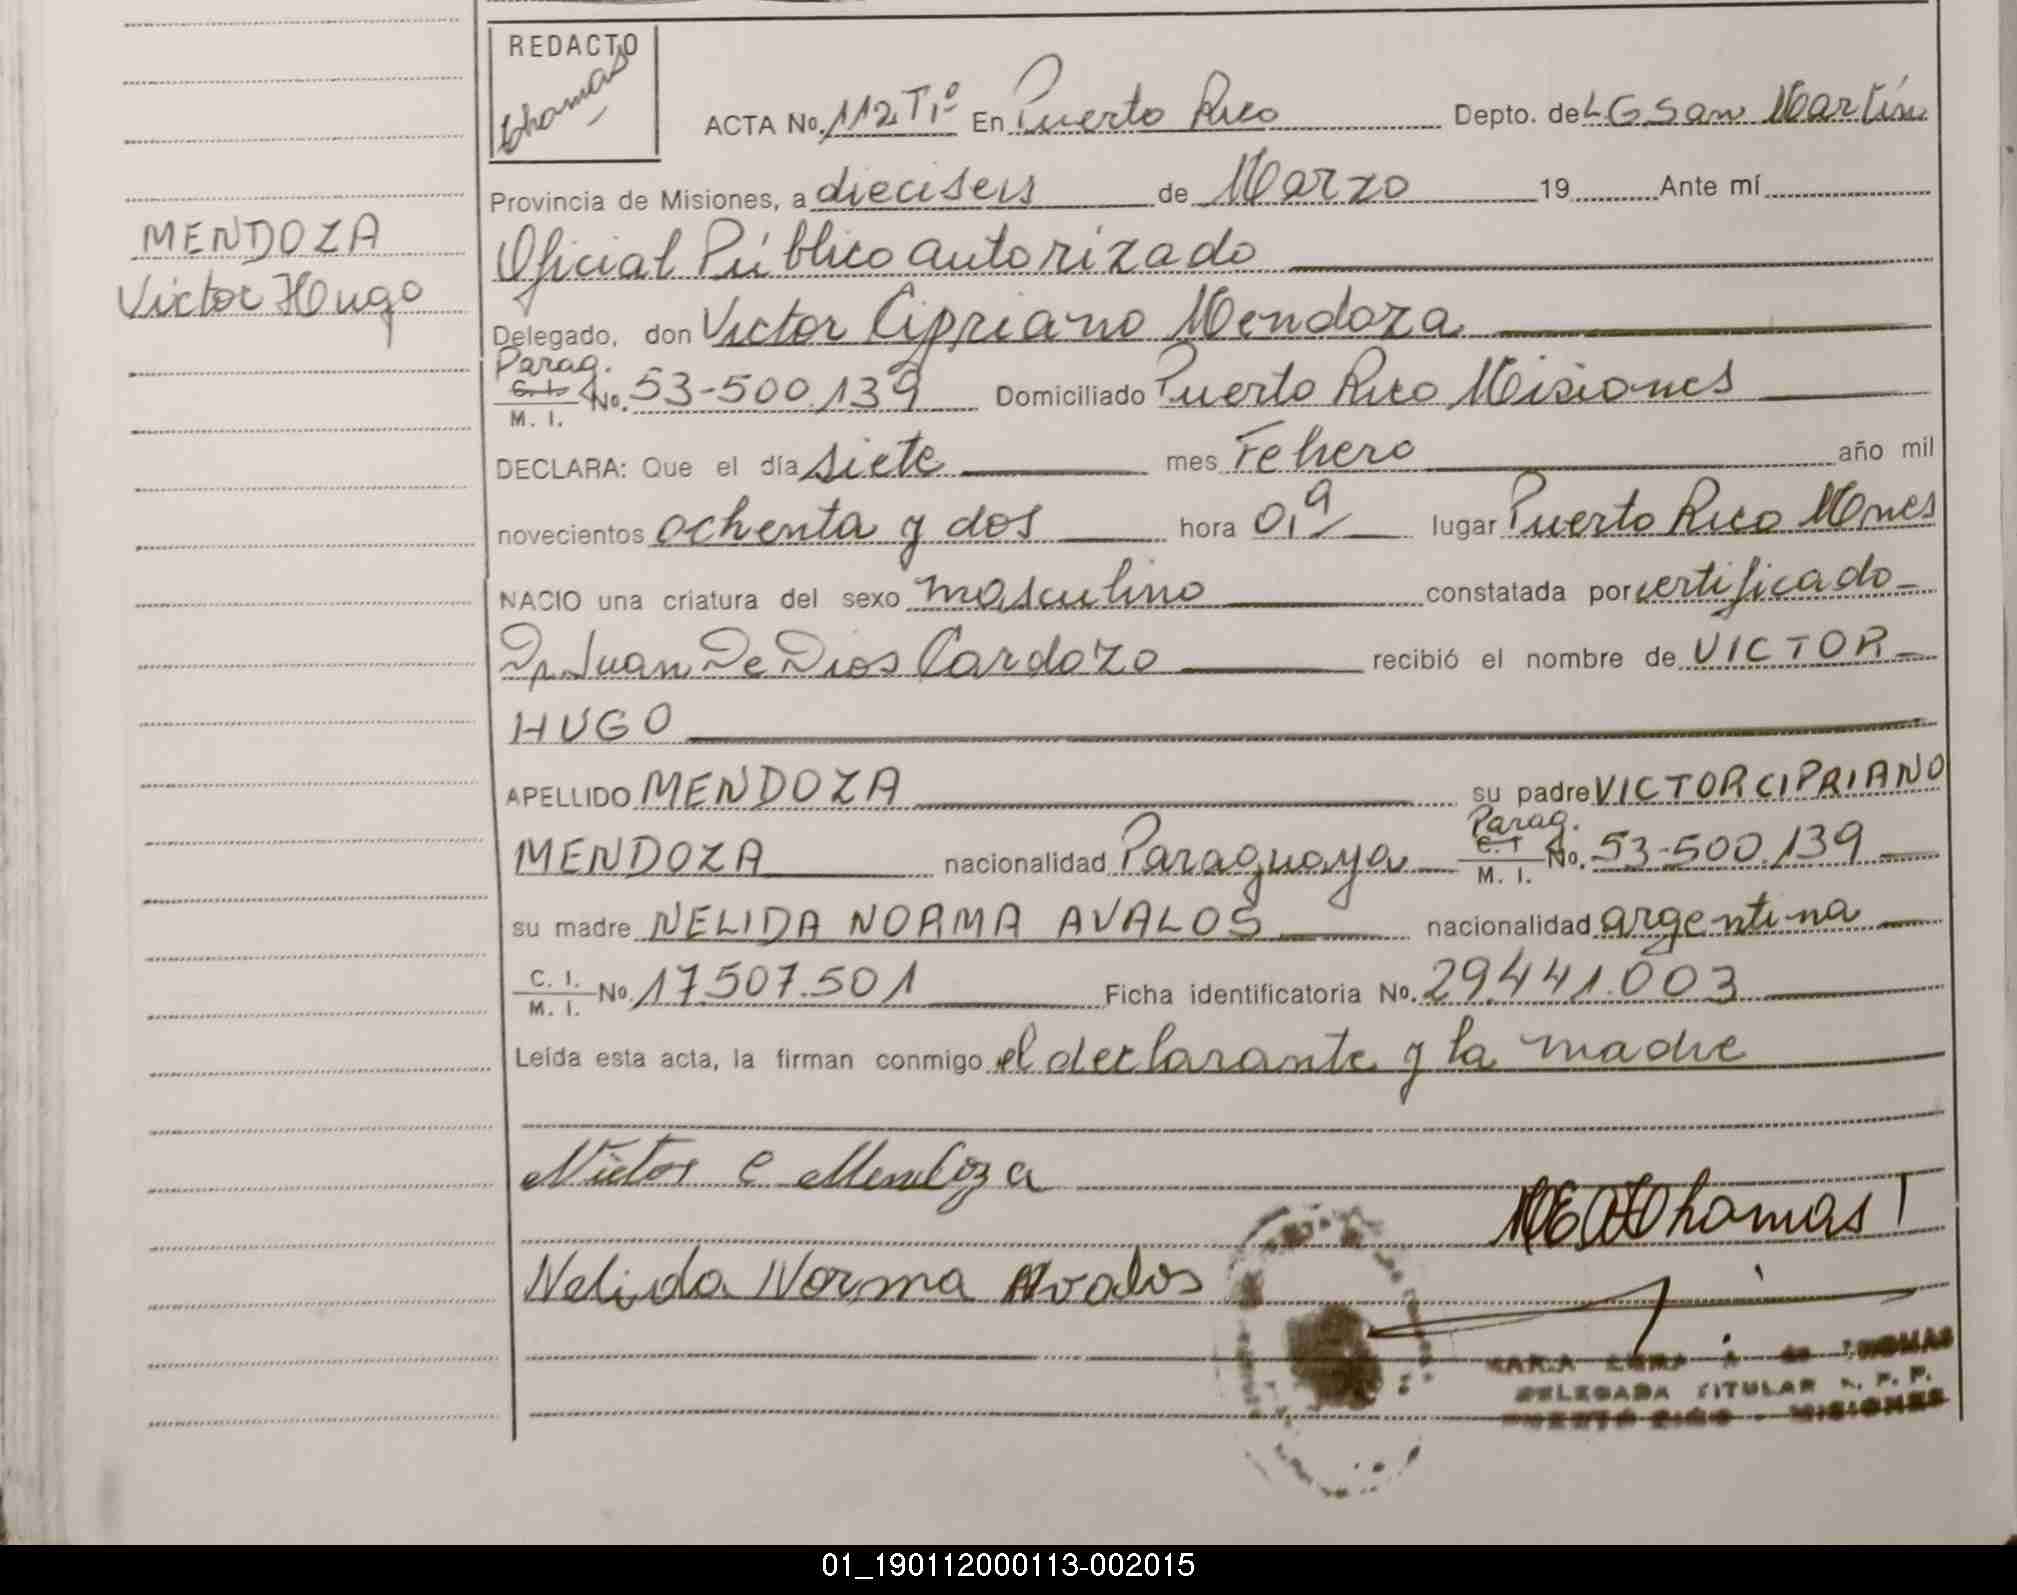 REDACTO
thomas
ACTA No. 112 T1º En Puerto Rico Depto. de L G San Martín
Provincia de Misiones, a dieciseis de Marzo 19 Ante mí
MENDOZA
Victor Hugo
Oficial Público autorizado
Delegado, don Victor Cipriano Mendoza
Parag.
C. I. No. 53-500.139 Domiciliado Puerto Rico Misiones
M. I.
DECLARA: Que el día siete mes Febrero año mil
novecientos ochenta y dos hora 0,9 lugar Puerto Rico Mnes
NACIO una criatura del sexo masculino constatada por certificado
Dr. Juan De Dios Cardozo recibió el nombre de VICTOR
HUGO
APELLIDO MENDOZA su padre VICTOR CIPRIANO
MENDOZA nacionalidad Paraguaya Parag. C. I. M. I. No. 53-500.139
su madre NELIDA NORMA AVALOS nacionalidad argentina
C. I. M. I. No. 17.507.501 Ficha identificatoria No. 29.441.003
Leída esta acta, la firman conmigo el declarante y la madre
Victor C Mendoza
Thomas
Nelida Norma Avalos
MARIA A. de THOMAS
DELEGADA TITULAR R. P. P.
PUERTO RICO - MISIONES
01_190112000113-002015